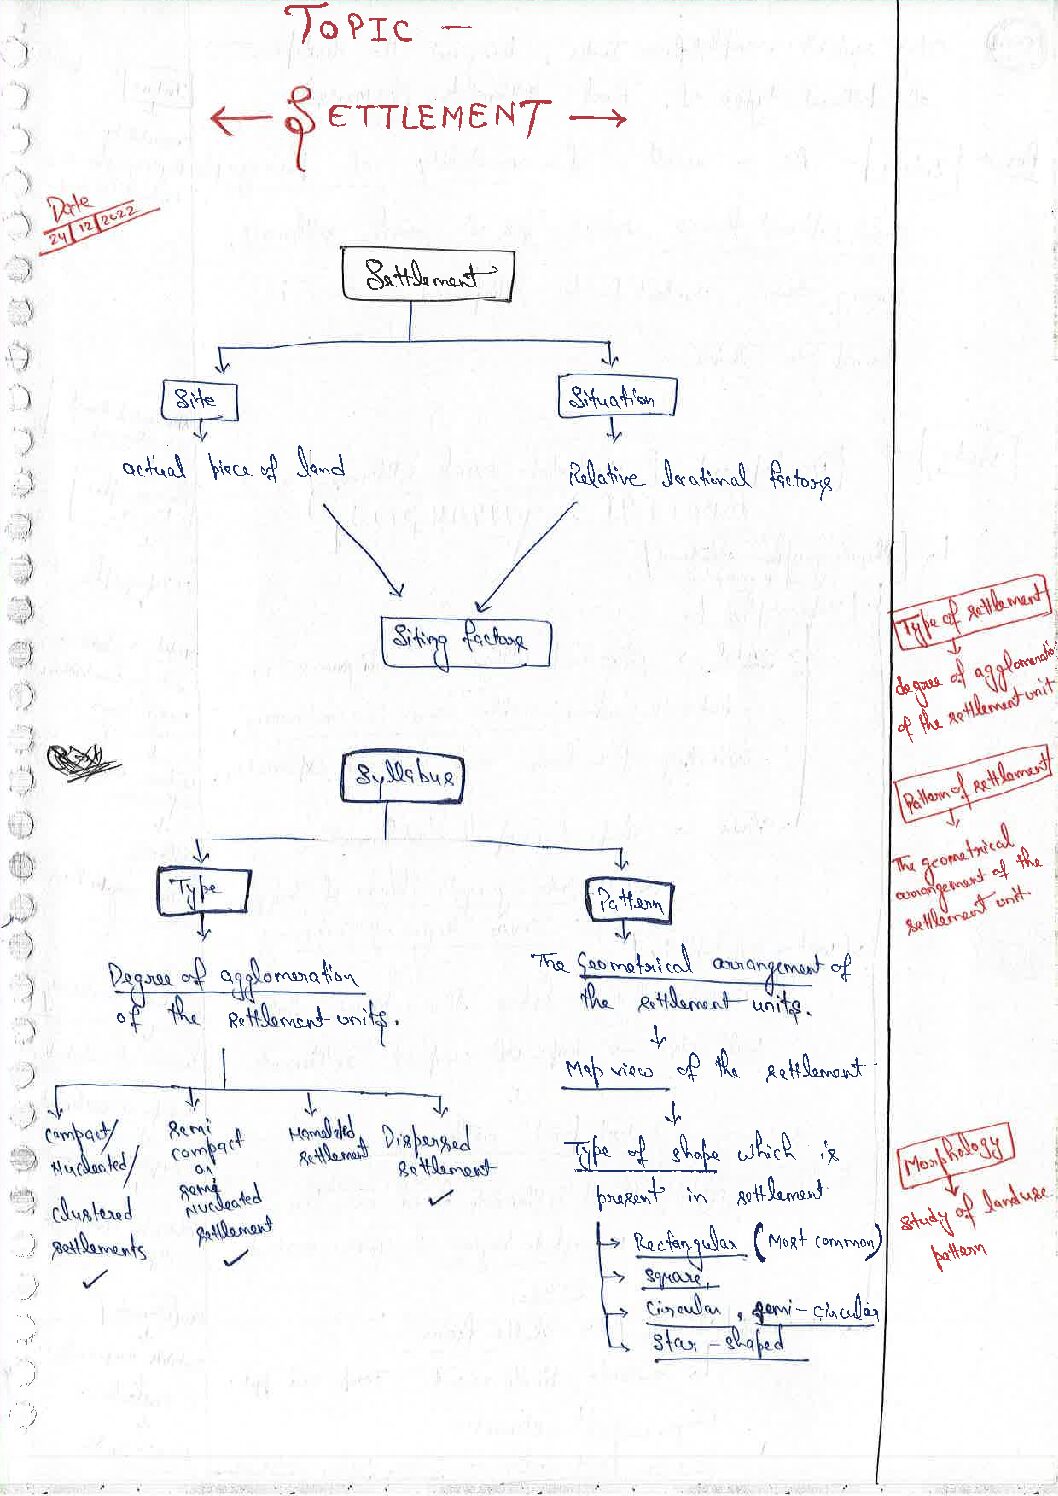 TOPIC -
← SETTLEMENT →
Date
24/12/2022
Settlement
Site
Situation
actual piece of land
Relative locational factors
Siting factors
Type of settlement
degree of agglomeratio
of the settlement unit
Syllabus
Pattern of settlement
The geometrical
arrangement of the
settlement unit.
Type
Pattern
Degree of agglomeration
of the settlement units.
The Geometrical arrangement of
the settlement units.
Map view of the settlement
Compact/
Nucleated/
clustered
settlements
✓
Semi
compact
or
semi
Nucleated
settlement
✓
Hamleted
settlement
Dispersed
settlement
✓
Type of shape which is
present in settlement
→ Rectangular (Most common)
→ square,
→ Circular, semi-circular
→ star-shaped
Morphology
study of landuse
pattern